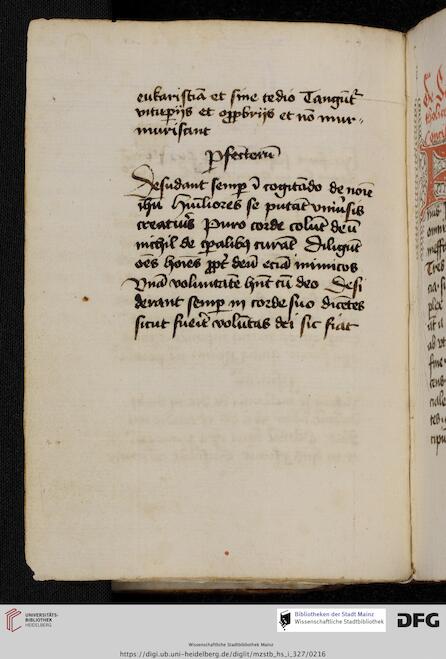 eukaristiā et sine tedio Tangūt̄
vitupijs et opprobrijs et nō mur-
murant
Pfectorū
Desudant semp ī cogitādo de noīe
ihū Hūiliores se putāt vniūsis
creatuīs Puro corde colūt deū
nichil de cpalibꝫ curāt Diligūt
oēs hoīes ꝓpt̄ deū eciā inimicos
Vnā voluntatē hn̄t cū deo Desi
derant semp in corde suo dicētes
sicut fueīt voluntas dei sic fiat
UNIVERSITÄTS-
BIBLIOTHEK
HEIDELBERG
Bibliotheken der Stadt Mainz
Wissenschaftliche Stadtbibliothek
DFG
Wissenschaftliche Stadtbibliothek Mainz
https://digi.ub.uni-heidelberg.de/diglit/mzstb_hs_i_327/0216